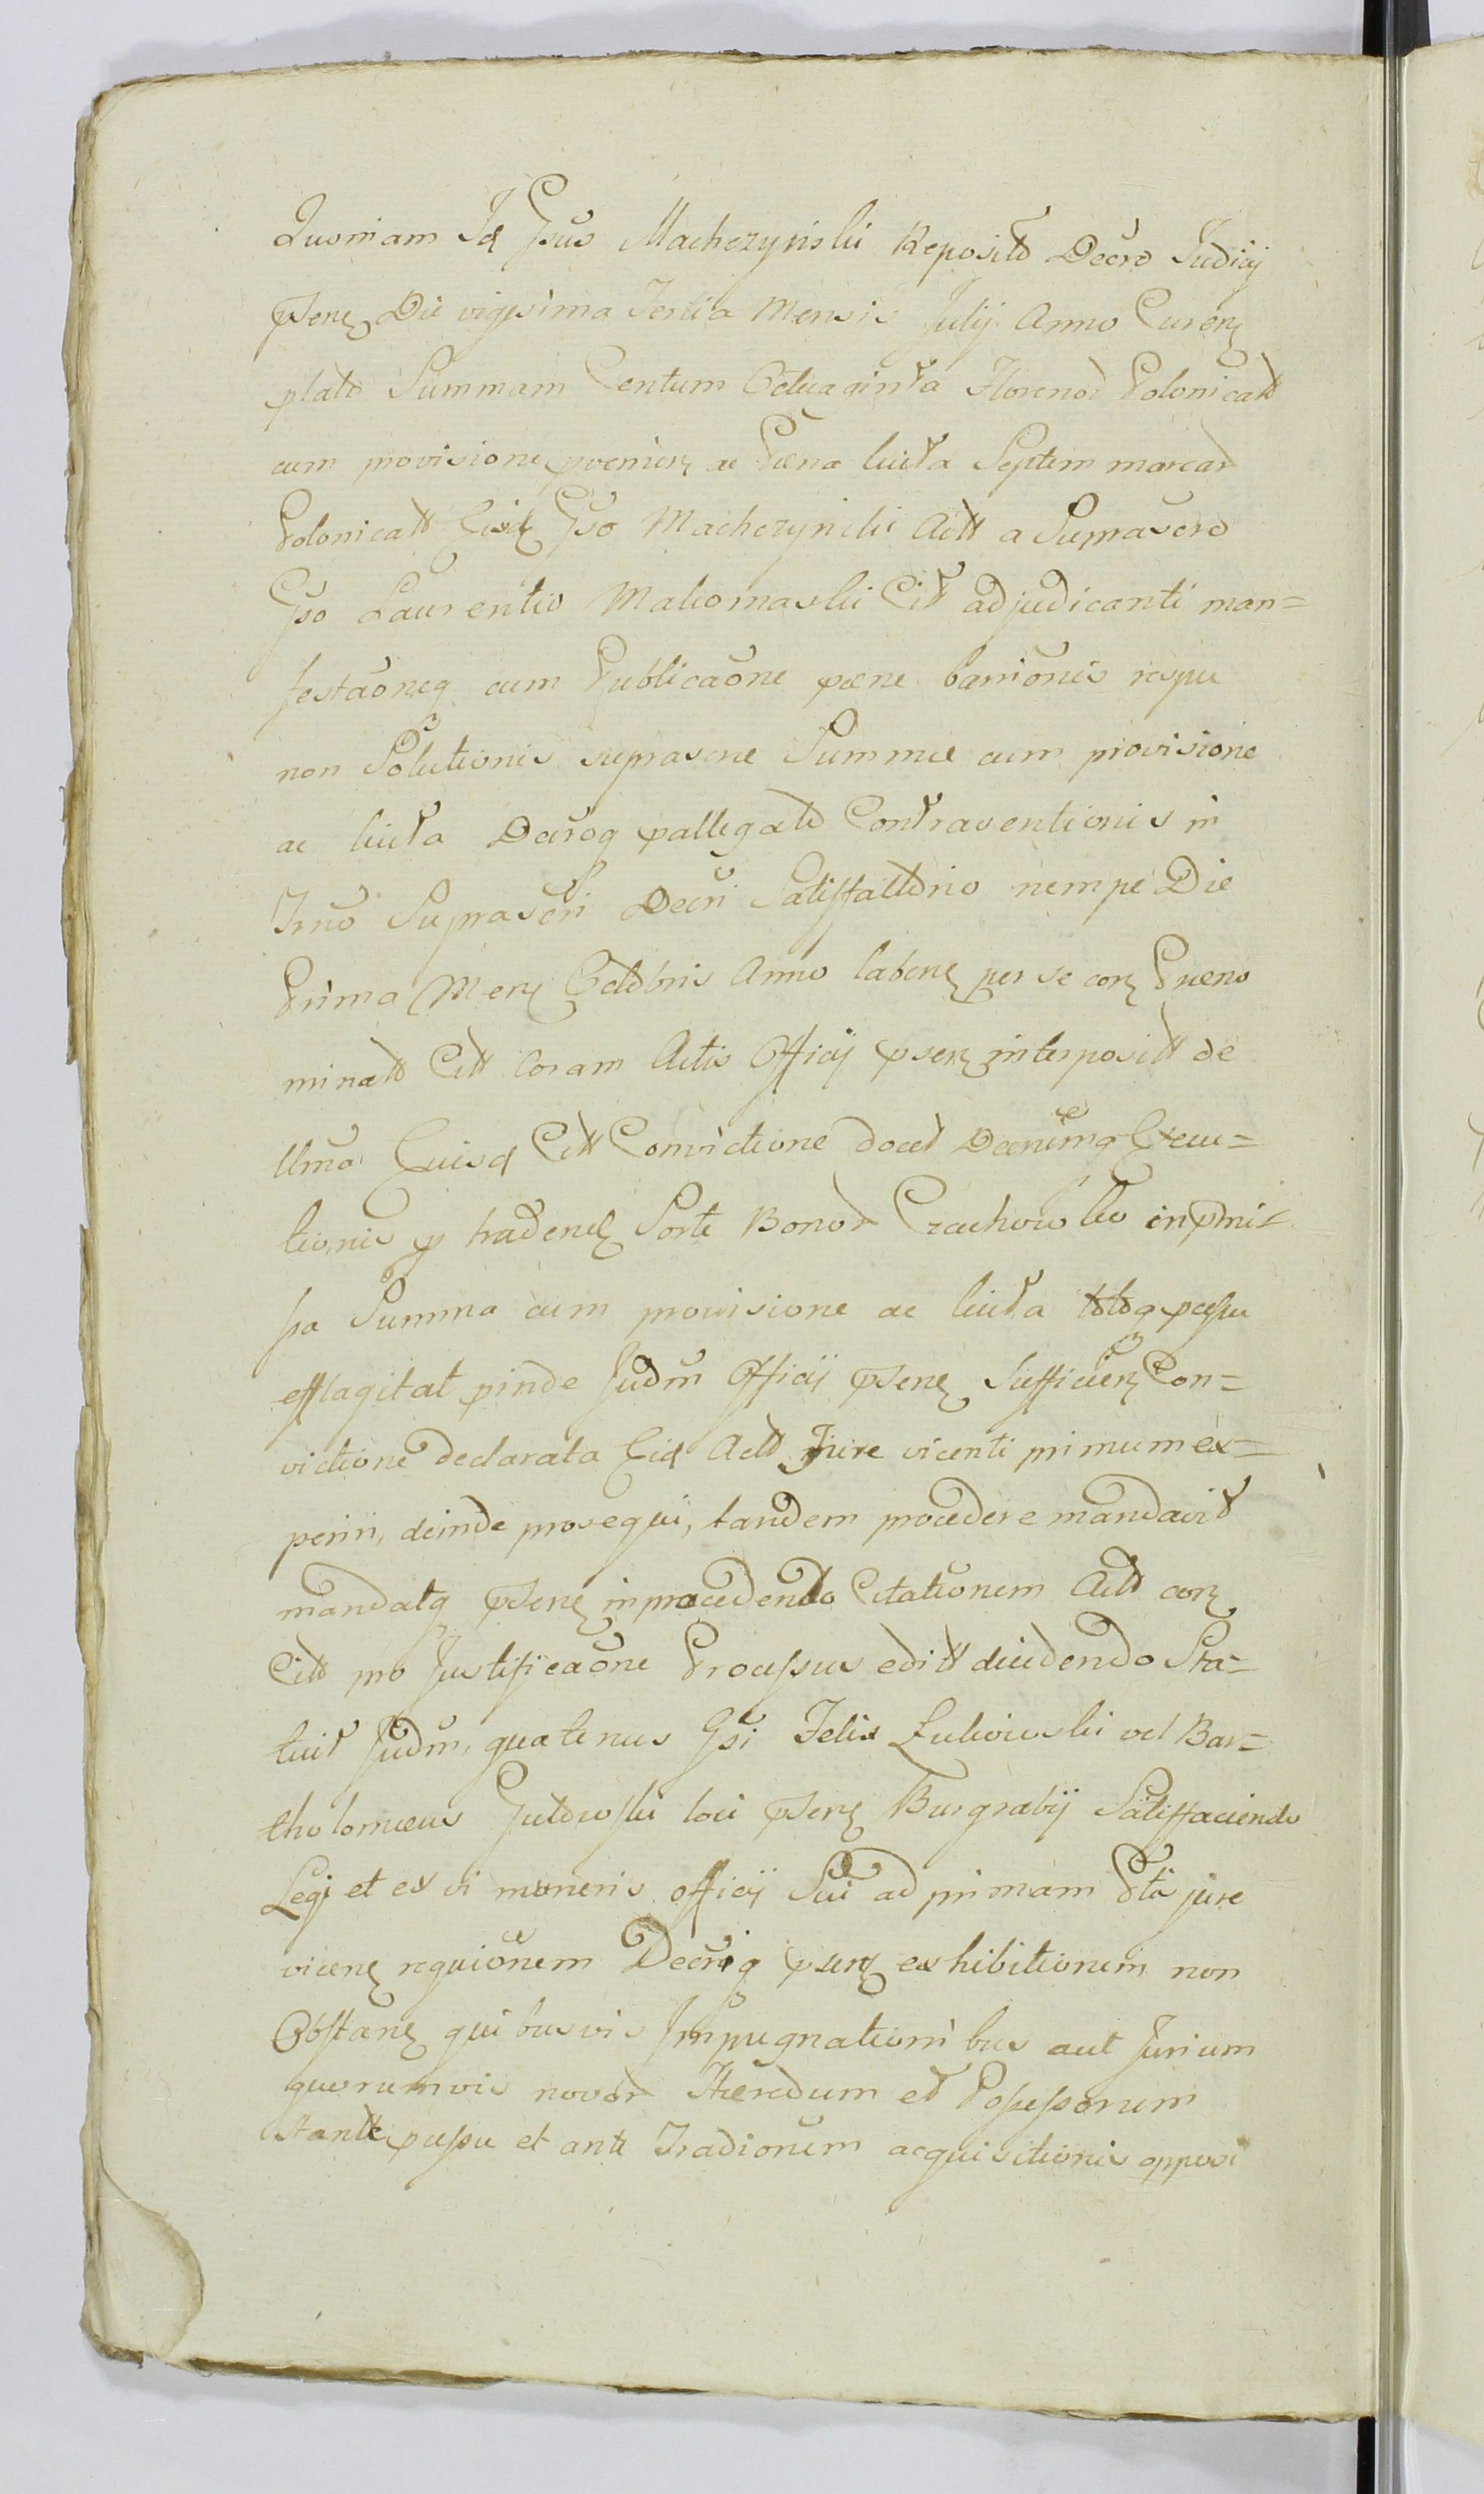 Quoniam Id Gsus Machczynski Reposito Decro Judicij
psene Die vigesima Tertia Mensis Julij Anno Curen
plato Summam Centum Octuaginta Florenor Polonicalt
cum provisione pvenien ac Pæna luita Septem marcar
Polonicalt Eisd Gso Machczynski Actt a Suprascro
Gso Laurentio Makomaski Citt adjudicanti man=
festaõneq cum Publicaõne pæne baniõnis respu
non Solutionis suprascræ Summæ cum provisione
ac luita Decroq pallegato Contraventionis in
Trno Suprascri Decri Satisfattorio nempe Die
Prima Men Octobris Anno labene per se con Præno
minatt Citt Coram Actis Officij psen interpositt de
llma Eiusd Citt Convictione docet Decrumq Execu=
tionis p tradend Sorte Bonor Czachowko in pmis
sa Summa cum provisione ac luita totoq pcessu
efflagitat pinde Judm Officij psene Sufficien Con=
victione declarata Eid Actt Jure vicenti primum ex=
periri, deinde prosequi, tandem procedere mandavit
mandatq psene in procedendo Citationem Actt con
Citt pro Justificaõne Processus editt decidendo Sta=
tuit Judm, quatenus Gsi Felix Lukowski vel Bar=
tholomæus Gutowski loci psen Burgrabij Satisfaciendo
Legi et ex vi muneris officij Sui ad primam Ptis jure
vicene requiõnem Decriq psen exhibitionem non
Obstane quibusvis Impugnationibus aut Jurium
quorumvis novor Hæredum et Possessorum
stante pcessu et ante Tradionem acquisitionis opposi